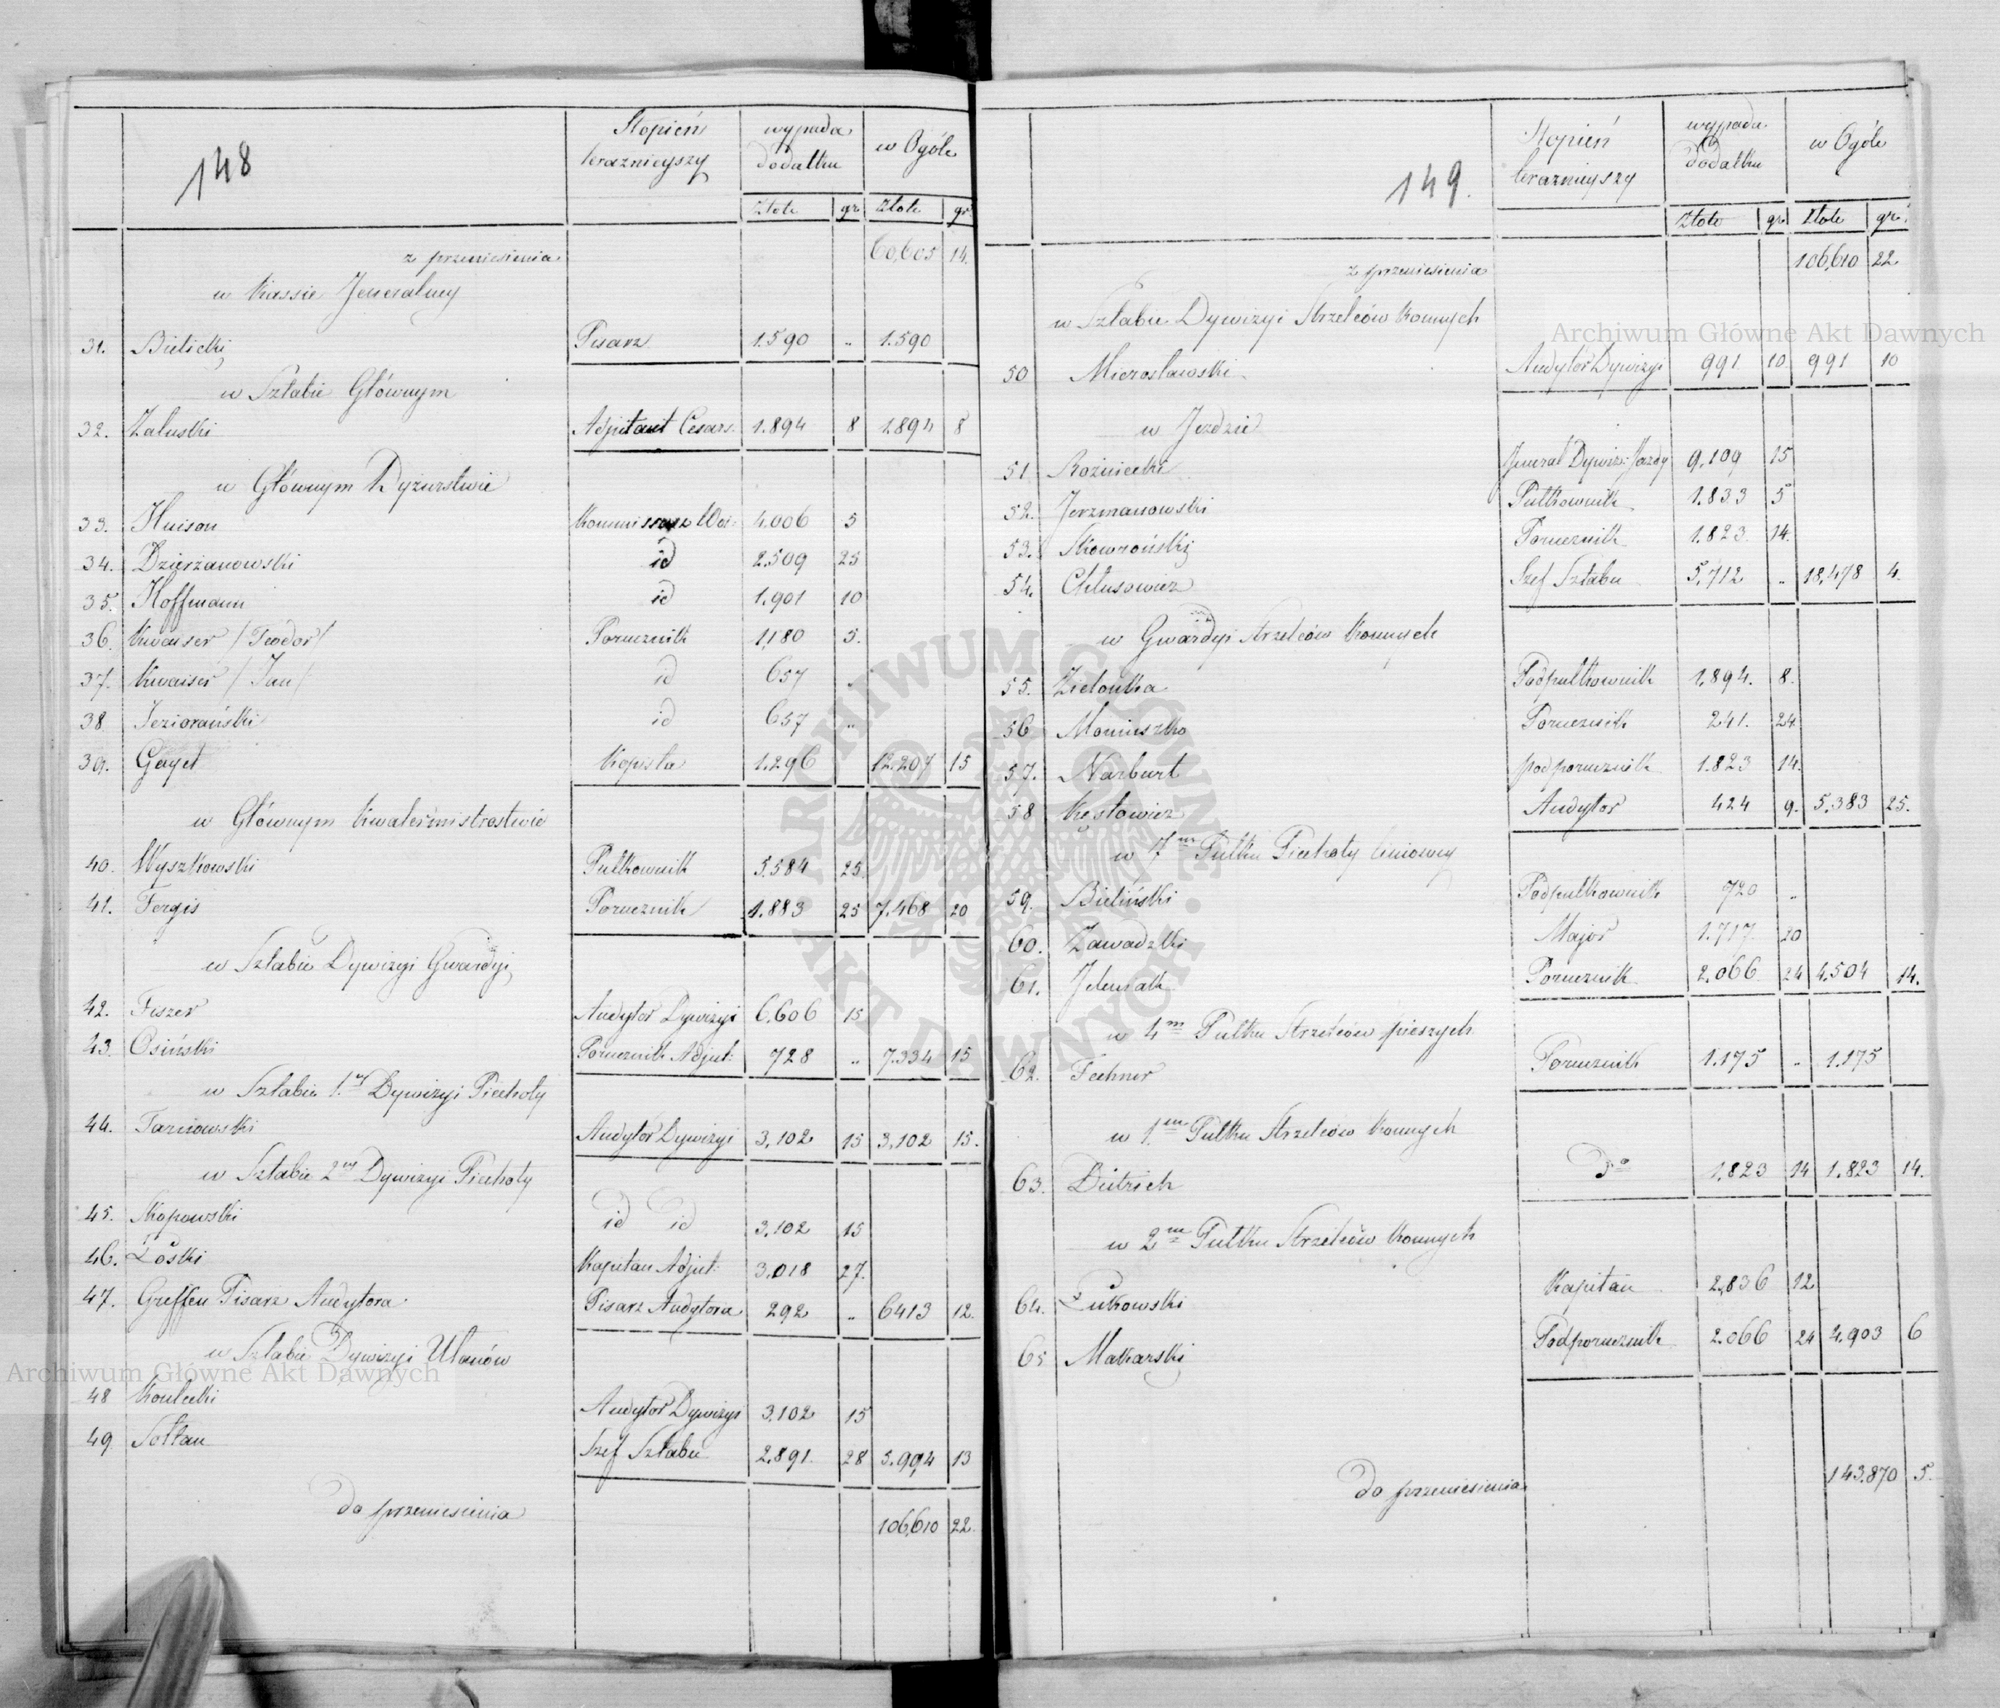 148
Stopień teraznieyszy | wypada dodatku | w Ogóle
Złote | gr | Złote | gr
z przeniesienia 60,605 14.
w Kassie Jeneralney
31. Bielicki Pisarz 1.590 .. 1.590
w Sztabie Głównym
32. Załuski Adjutant Cesars. 1.894 8 1.894 8
w Głównym Dyżurstwie
33. Huison Kommissarz Woi: 4.006 5
34. Dzierżanowski id 2.509 25
35. Hoffmann id 1.901 10
36. Kwaiser /Teodor/ Porucznik 1,180 5.
37. Kwaiser /Jan/ id 657 ..
38 Jeziorański id 657 ..
39. Gayet Kopista 1.296 12.207 15
w Głównym Kwatermistrostwie
40. Wyszkowski Pułkownik 5.584 25
41. Fergis Porucznik 1.883 25 7.468 20
w Sztabie Dywizyi Gwardyi
42. Fiszer Audytor Dywizyi 6.606 15
43. Osiński Porucznik Adjut: 728 .. 7.334 15
w Sztabie 1ey Dywizyi Piechoty
44. Tarnowski Audytor Dywizyi 3,102 15 3,102 15.
w Sztabie 2ey Dywizyi Piechoty
45. id id 3,102 15
46. Łoski Kapitan Adjut: 3,018 27.
47. Greffen Pisarz Audytora Pisarz Audytora 292 .. 6413 12.
w Sztabie Dywizyi Ułanów
48 Audytor Dywizyi 3,102 15
49 Sołtan Szef Sztabu 2.891. 28 5.994 13
do przeniesienia 106,610 22.
149.
Stopień teraznieyszy | wypada dodatku | w Ogóle
Złote | gr. | Złote | gr.
z przeniesienia 106,610 22
w Sztabie Dywizyi Strzelców Konnych
50 Mierosławski Audytor Dywizyi 991. 10 991 10
w Jezdzie
51. Rożniecki Jenerał Dywizi: Jazdy 9,109 15
52. Jerzmanowski Pułkownik 1.833 5
53. Skowroński Porucznik 1.823. 14.
54. Chłusowicz Szef Sztabu 5,712 .. 18,478 4.
w Gwardyi Strzelców Konnych
55. Zielonka Podpułkownik 1.894. 8.
56 Moniuszko Porucznik 241. 24.
57. Narbutt podporucznik 1.823 14.
58 Audytor 424 9. 5,383 25.
w 7m Pułku Piechoty liniowey
59. Bieliński Podpułkownik 720 ..
60. Zawadzki Major 1.717. 20
61. Porucznik 2,066 24 4,504 14.
w 4m Pułku Strzelców pieszych
62. Fechner Porucznik 1.175 .. 1.175
w 1m Pułku Strzelców Konnych
63. Dietrich do 1.823 14 1.823 14.
w 2m Pułku Strzelców Konnych
64. Żukowski Kapitan 2,836 12
65 Makarski Podporucznik 2.066 24 4,903 6
do przeniesienia 143.870 5.
Archiwum Główne Akt Dawnych
Archiwum Główne Akt Dawnych
ARCHIWUM GŁÓWNE AKT DAWNYCH